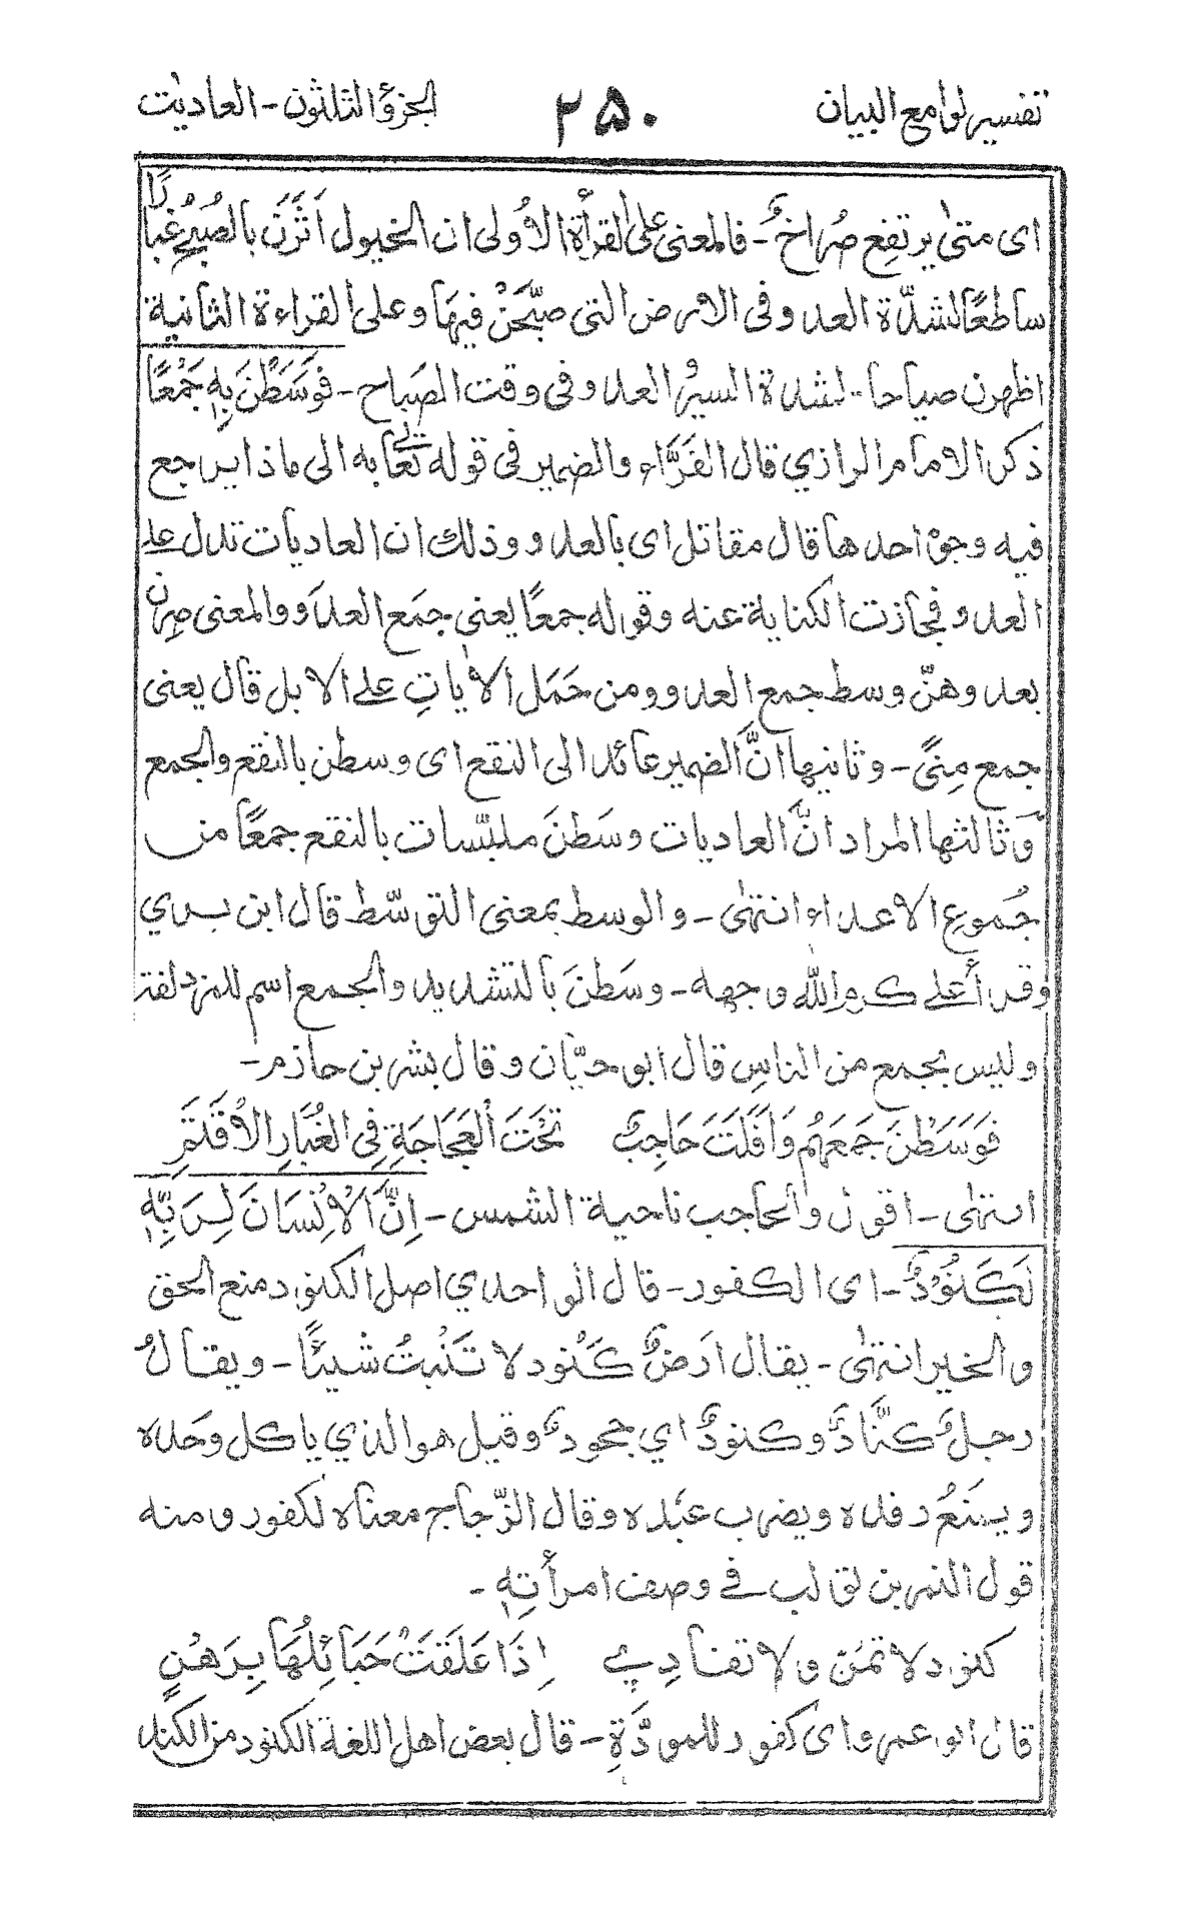 تفسير لوامع البيان ٢٥٠ الجزؤ الثلثون - العاديٰت
اى متىٰ يرتفِع صُراخٌ - فالمعنى على القرأة الاُولى ان الخيول اَثَرْنَ بالصُبْحِ غُبارًا
ساطعًا لشدّة العدو فى الارض التى صبّحْنَ فيهَا وعلى القراءة الثانية
اظهرن صياحا لشدة السيرُ العدو فى وقت الصَباح - فَوَسَطْنَ بِهٖ جَمْعًا
ذكر الامام الرازي قال الفَرَّاء والضمير فى قوله تعالى به الى ماذا يرجع
فيه وجوهٌ احدها قال مقاتل اى بالعدو وذلك ان العاديات تدل على
العدو فجازت الكناية عنه وقوله جمعًا يعنى جمَع العدَو والمعنى صِرن
بعدوهنّ وسط جمع العدو ومن حَمَل الاٰياتِ على الابل قال يعنى
جمع مِنًى - وثانيها انَّ الضمير عائد الى النقع اى وسطن بالنقع والجمع
وَثالثها المراد انَّ العاديات وسَطنَ ملبّسات بالنقع جمعًا من
جُموع الاعداء انتهىٰ - والوسط بمعنى التوسّط قال ابن بري
وقرأ على كرم اللّٰه وجهه - وسَطنَ بالتشديد والجمع اسم للمزدلفة
وليس بجمع من الناسِ قال ابو حيّان وقال بشر بن حازم -
فَوَسَطْنَ جَمعَهُم وَاَفَلَتَ حَاجِبٌ تَحْتَ العَجَاجَةِ فِى الغُبَارِ الاْقَتَمِ
انتهٰى - اقول والحاجب ناحية الشمس - اِنَّ الْاِنْسَانَ لِرَبِّهٖ
لَكَنُوْدٌ - اى الكفور - قال الواحدي اصل الكنود منع الحق
والخير انتهىٰ - يقال ارَضٌ كَنُود لا تَنْبتُ شيئًا - ويقالُ
رجلٌ كنَّادٌ وكنودٌ اي جحودٌ وقيل هو الذي ياكل وحده
ويمنَعُ رفده ويضرب عبَده وقال الزّجاج معناه لكفور ومنه
قول النمر بن تولب في وصف امرأتِهٖ -
كنود لا تمنّ ولا تفادِي اِذَا عَلَقَتْ حَبَائِلُهَا بِرَهْنٍ
قال ابو عمرو اى كفور للمودَّةِ - قال بعض اهل اللغة الكنود من الكند